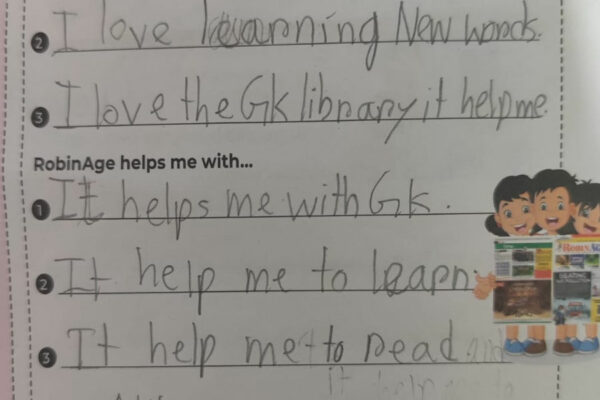 2 I love learning New words.
3 I love the Gk library it help me.
RobinAge helps me with...
1 It helps me with Gk.
2 It help me to learn
3 It help me to read and
it help me to